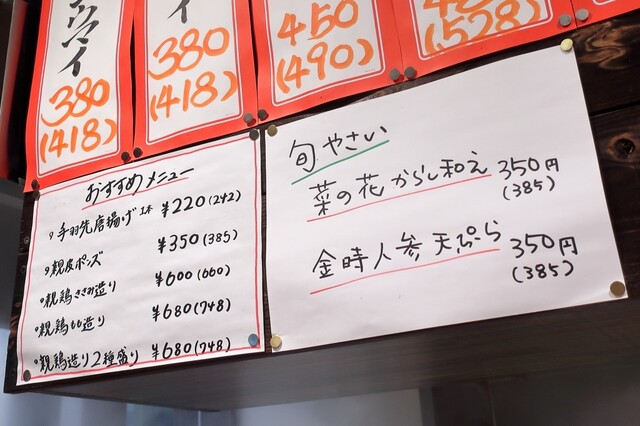 ウマイ
380
(418)
イ
380
(418)
450
(490)
(528)
おすすめメニュー
手羽先唐揚げ 1本 ¥220(242)
親皮ポンズ ¥350(385)
親鶏ささみ造り ¥600(660)
親鶏もも造り ¥680(748)
親鶏造り2種盛り ¥680(748)
旬やさい
菜の花からし和え 350円
(385)
金時人参天ぷら 350円
(385)